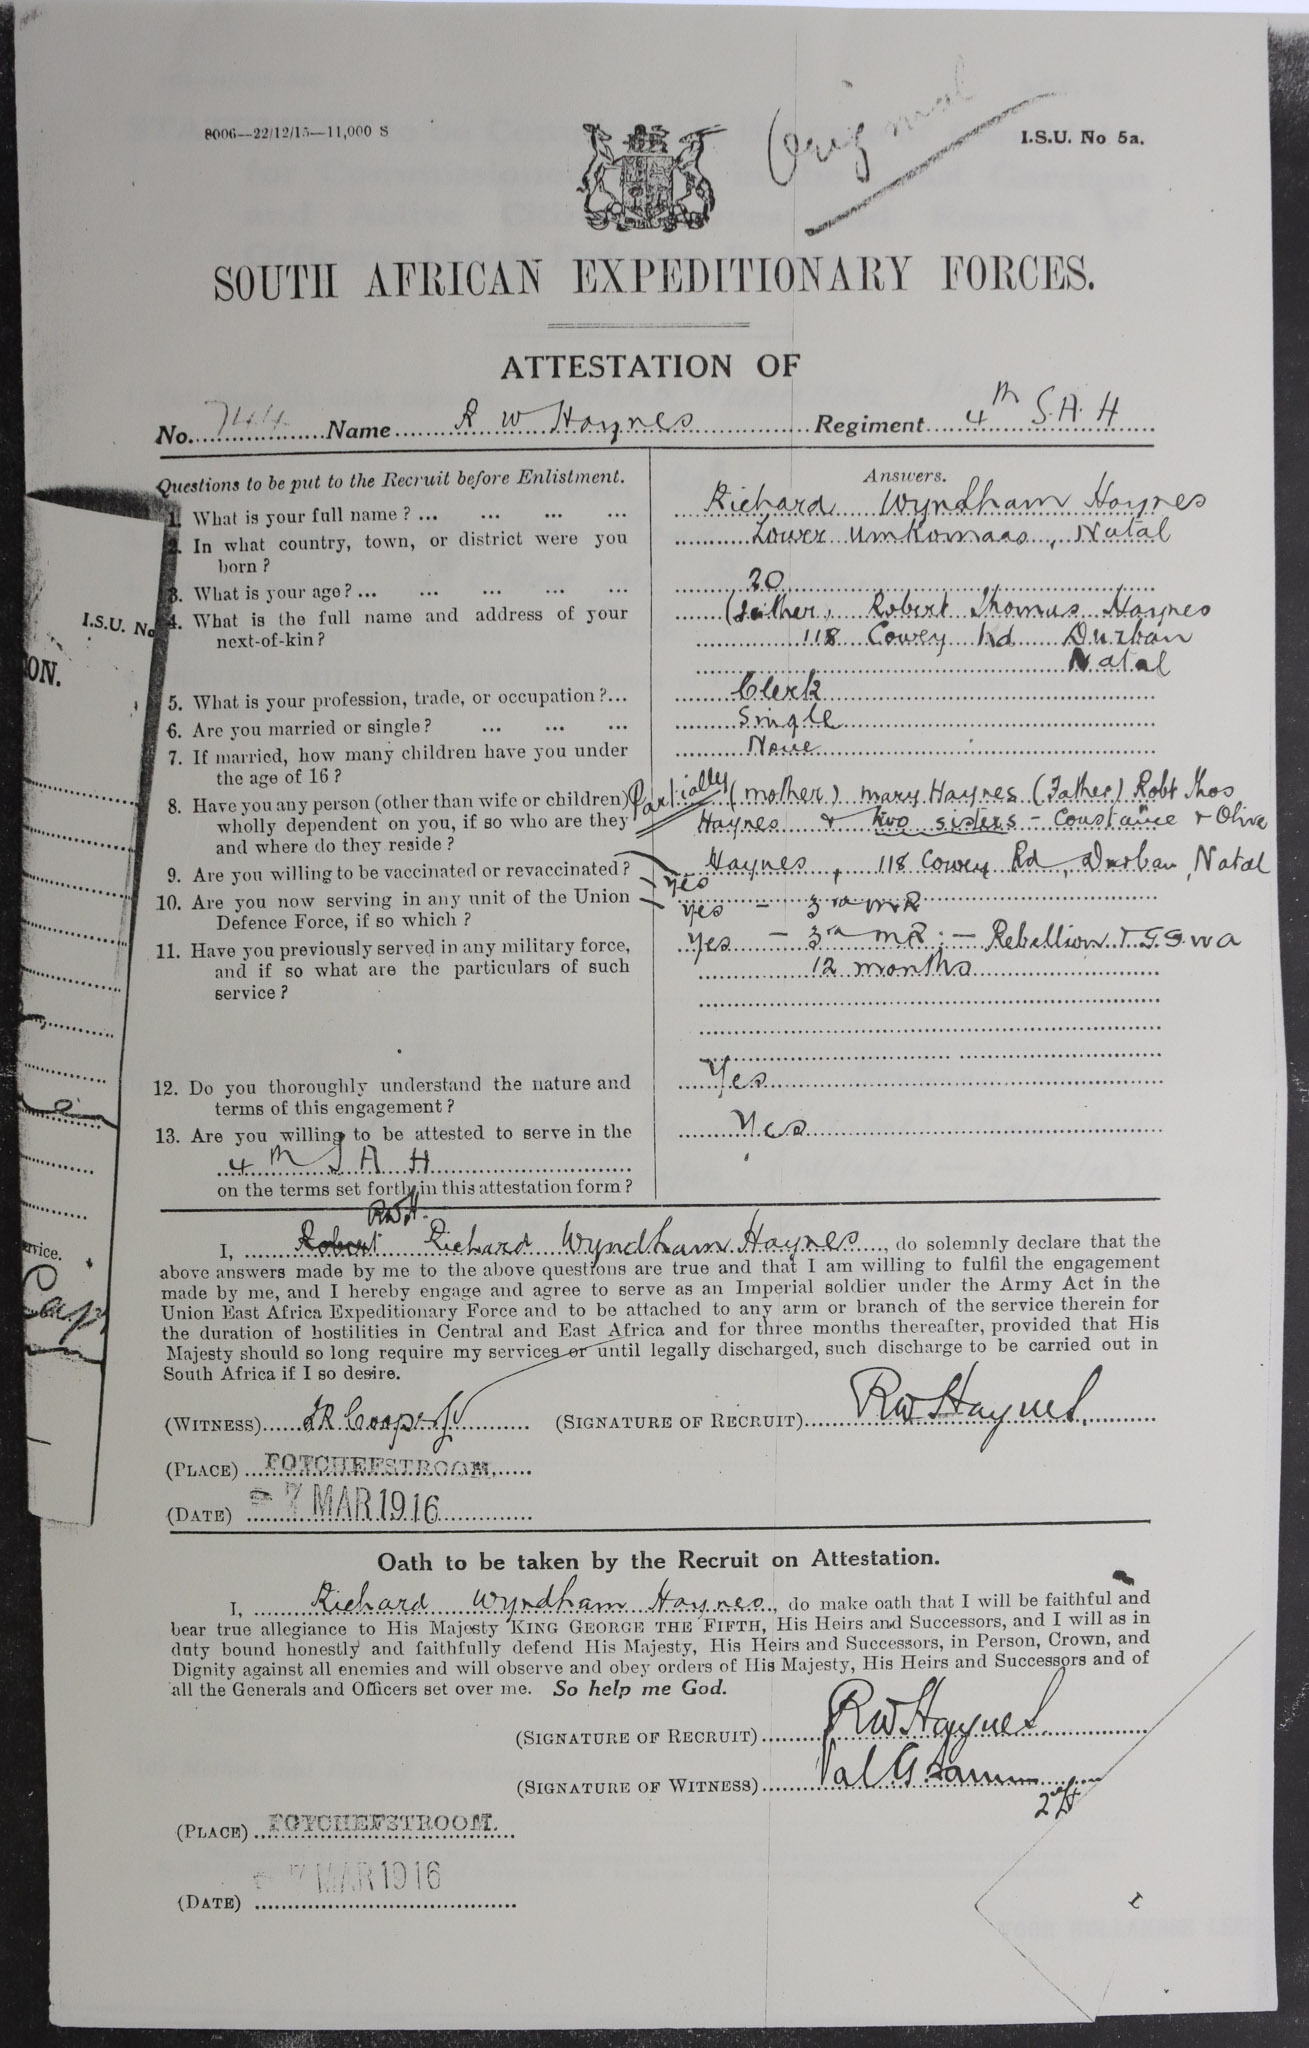 8006—22/12/15—11,000 S
Original
I.S.U. No 5a.
SOUTH AFRICAN EXPEDITIONARY FORCES.
ATTESTATION OF
No. 744 Name R W Haynes Regiment 4th S.A.H
Questions to be put to the Recruit before Enlistment.
Answers.
1. What is your full name ? ... ... ... ...
Richard Wyndham Haynes
2. In what country, town, or district were you
born ?
Lower Umkomaas, Natal
3. What is your age ? ... ... ... ... ...
20
4. What is the full name and address of your
next-of-kin ?
(Father) Robert Thomas Haynes
118 Cowey Rd Durban
Natal
5. What is your profession, trade, or occupation ?...
Clerk
6. Are you married or single ? ... ... ...
Single
7. If married, how many children have you under
the age of 16 ?
None
8. Have you any person (other than wife or children)
wholly dependent on you, if so who are they
and where do they reside ?
Partially (mother) Mary Haynes (Father) Robt Thos
Haynes & two sisters - Constance & Olive
Haynes, 118 Cowey Rd, Durban, Natal
9. Are you willing to be vaccinated or revaccinated ?
yes
10. Are you now serving in any unit of the Union
Defence Force, if so which ?
yes - 3rd MR
11. Have you previously served in any military force,
and if so what are the particulars of such
service ?
yes - 3rd MR; - Rebellion & G.S.W.A
12 months
12. Do you thoroughly understand the nature and
terms of this engagement ?
Yes
13. Are you willing to be attested to serve in the
4th S A H
on the terms set forth in this attestation form ?
Yes
RWH.
I, Robert Richard Wyndham Haynes, do solemnly declare that the
above answers made by me to the above questions are true and that I am willing to fulfil the engagement
made by me, and I hereby engage and agree to serve as an Imperial soldier under the Army Act in the
Union East Africa Expeditionary Force and to be attached to any arm or branch of the service therein for
the duration of hostilities in Central and East Africa and for three months thereafter, provided that His
Majesty should so long require my services or until legally discharged, such discharge to be carried out in
South Africa if I so desire.
(WITNESS) Cooper (SIGNATURE OF RECRUIT) RW Haynes
(PLACE) POTCHEFSTROOM.
(DATE) - 7 MAR 1916
Oath to be taken by the Recruit on Attestation.
I, Richard Wyndham Haynes, do make oath that I will be faithful and
bear true allegiance to His Majesty KING GEORGE THE FIFTH, His Heirs and Successors, and I will as in
duty bound honestly and faithfully defend His Majesty, His Heirs and Successors, in Person, Crown, and
Dignity against all enemies and will observe and obey orders of His Majesty, His Heirs and Successors and of
all the Generals and Officers set over me. So help me God.
(SIGNATURE OF RECRUIT) RW Haynes
(SIGNATURE OF WITNESS) Val G
(PLACE) POTCHEFSTROOM.
(DATE) - 7 MAR 1916
I.S.U. No
ON.
rvice.